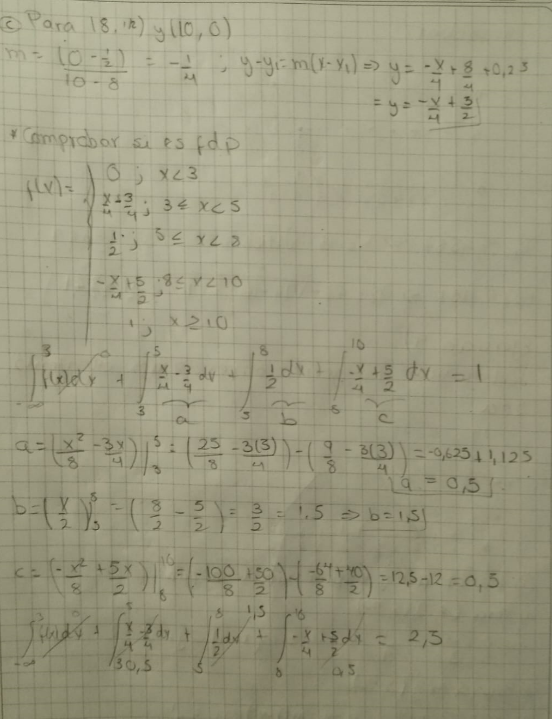 c) Para (8, 1/2) y (10, 0)
m = (0 - 1/2) / (10 - 8) = -1/4 ; y-y₁=m(x-x₁) ⇒ y = -x/4 + 8/4 + 0,25
= y = -x/4 + 5/2
* Comprobar si es fdp
f(x) = { 0 ; x<3
x/4 - 3/4 ; 3 ≤ x<5
1/2 ; 5 ≤ x<8
-x/4 + 5/2 ; 8 ≤ x<10
1 ; x ≥ 10
∫_{-∞}^{3} f(x)dx → 0 + ∫_{3}^{5} x/4 - 3/4 dx + ∫_{5}^{8} 1/2 dx + ∫^{10} -x/4 + 5/2 dx = 1
a b c
a = (x²/8 - 3x/4)|_{3}^{5} = (25/8 - 3(5)/4) - (9/8 - 3(3)/4) = -0,625 + 1,125
a = 0,5
b = (x/2)_{5}^{8} = (8/2 - 5/2) = 3/2 = 1.5 ⇒ b = 1,5
c = (-x²/8 + 5x/2)|_{8}^{10} = (-100/8 + 50/2) - (-64/8 + 40/2) = 12,5 - 12 = 0,5
∫_{-∞}^{3} f(x)dx 0 + ∫_{3}^{5} x/4 - 3/4 dx 0,5 + ∫_{5}^{8} 1/2 dx 1,5 + ∫_{8}^{10} -x/4 + 5/2 dx 0,5 = 2,5